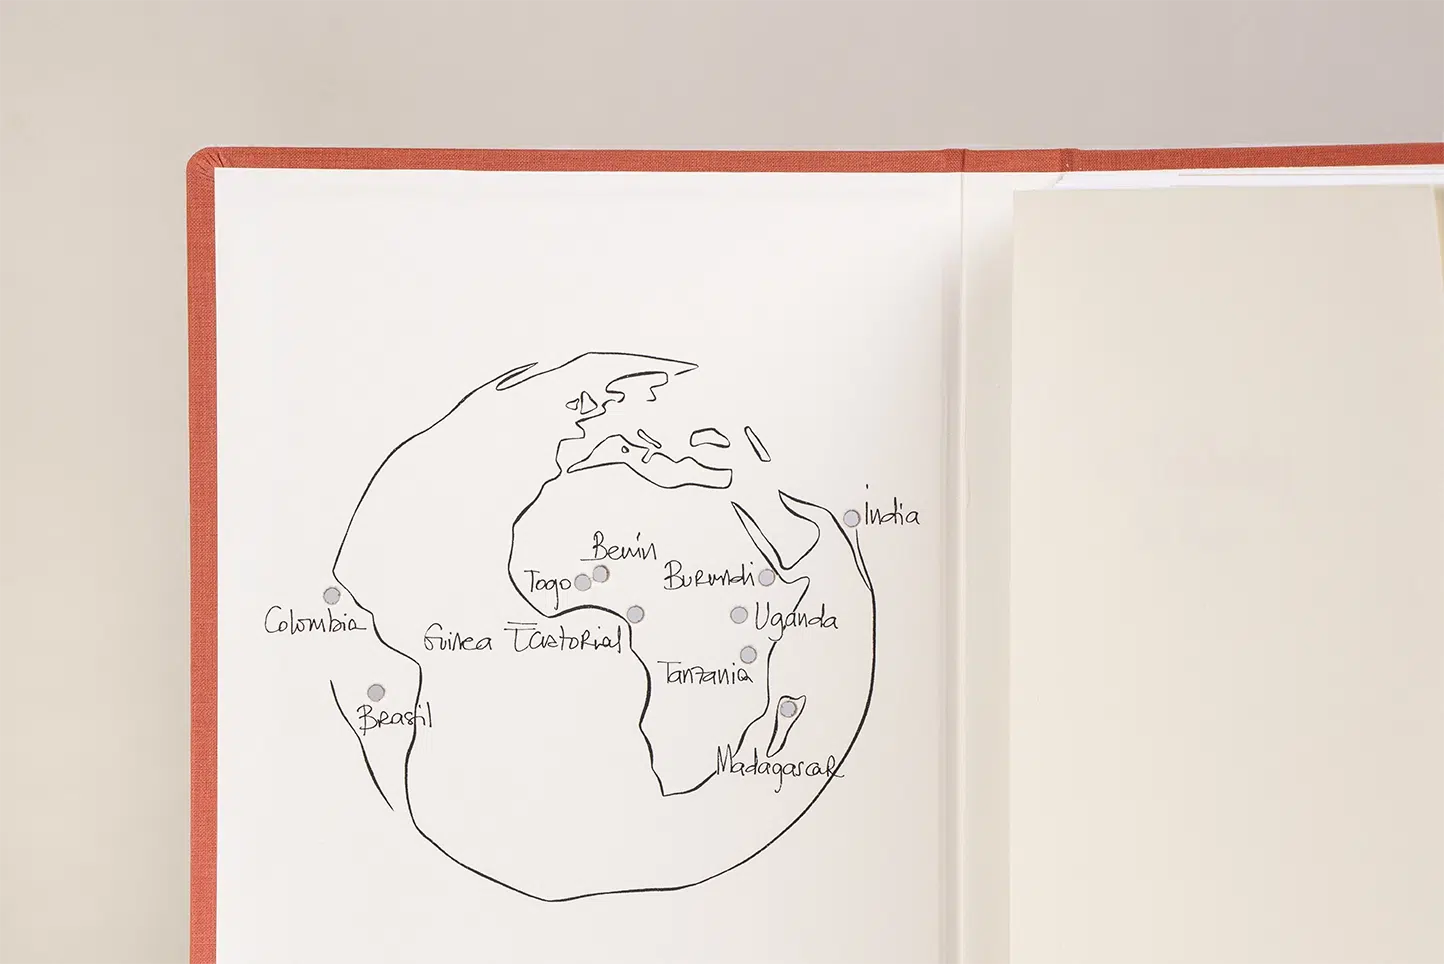 India
Benín
Togo
Burundi
Colombia
Uganda
Guinea Ecuatorial
Tanzania
Brasil
Madagascar